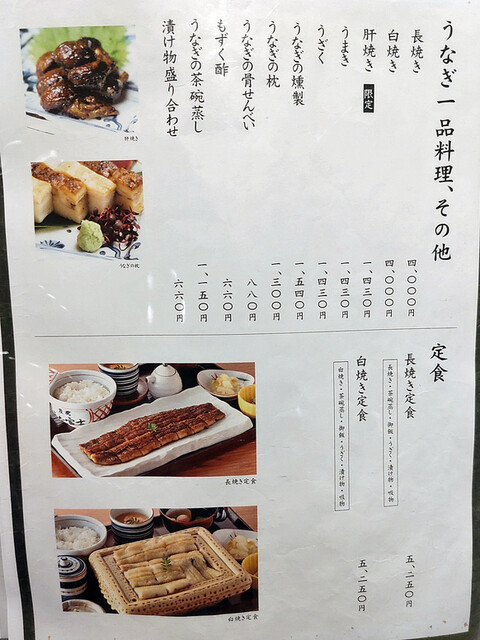 うなぎ一品料理、その他
長焼き 四、〇〇〇円
白焼き 四、〇〇〇円
肝焼き 限定 一、四三〇円
うまき 一、四三〇円
うざく 一、四三〇円
うなぎの燻製 一、五四〇円
うなぎの枕 一、三〇〇円
うなぎの骨せんべい 八八〇円
もずく酢 六六〇円
うなぎの茶碗蒸し 一、一五〇円
漬け物盛り合わせ 六六〇円
肝焼き
うなぎの枕
定食
長焼き定食 五、二五〇円
長焼き・茶碗蒸し・御飯・うざく・漬け物・吸物
白焼き定食 五、二五〇円
白焼き・茶碗蒸し・御飯・うざく・漬け物・吸物
長焼き定食
白焼き定食